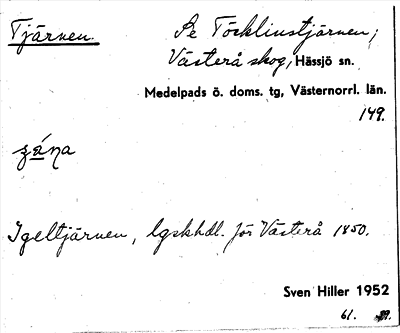 Tjärnen.
Se Töcklinstjärnen;
Västerå skog, Hässjö sn.
Medelpads ö. doms. tg, Västernorrl. län.
149.
Igeltjärnen, lgskhdl. för Västerå 1850.
Sven Hiller 1952
61.